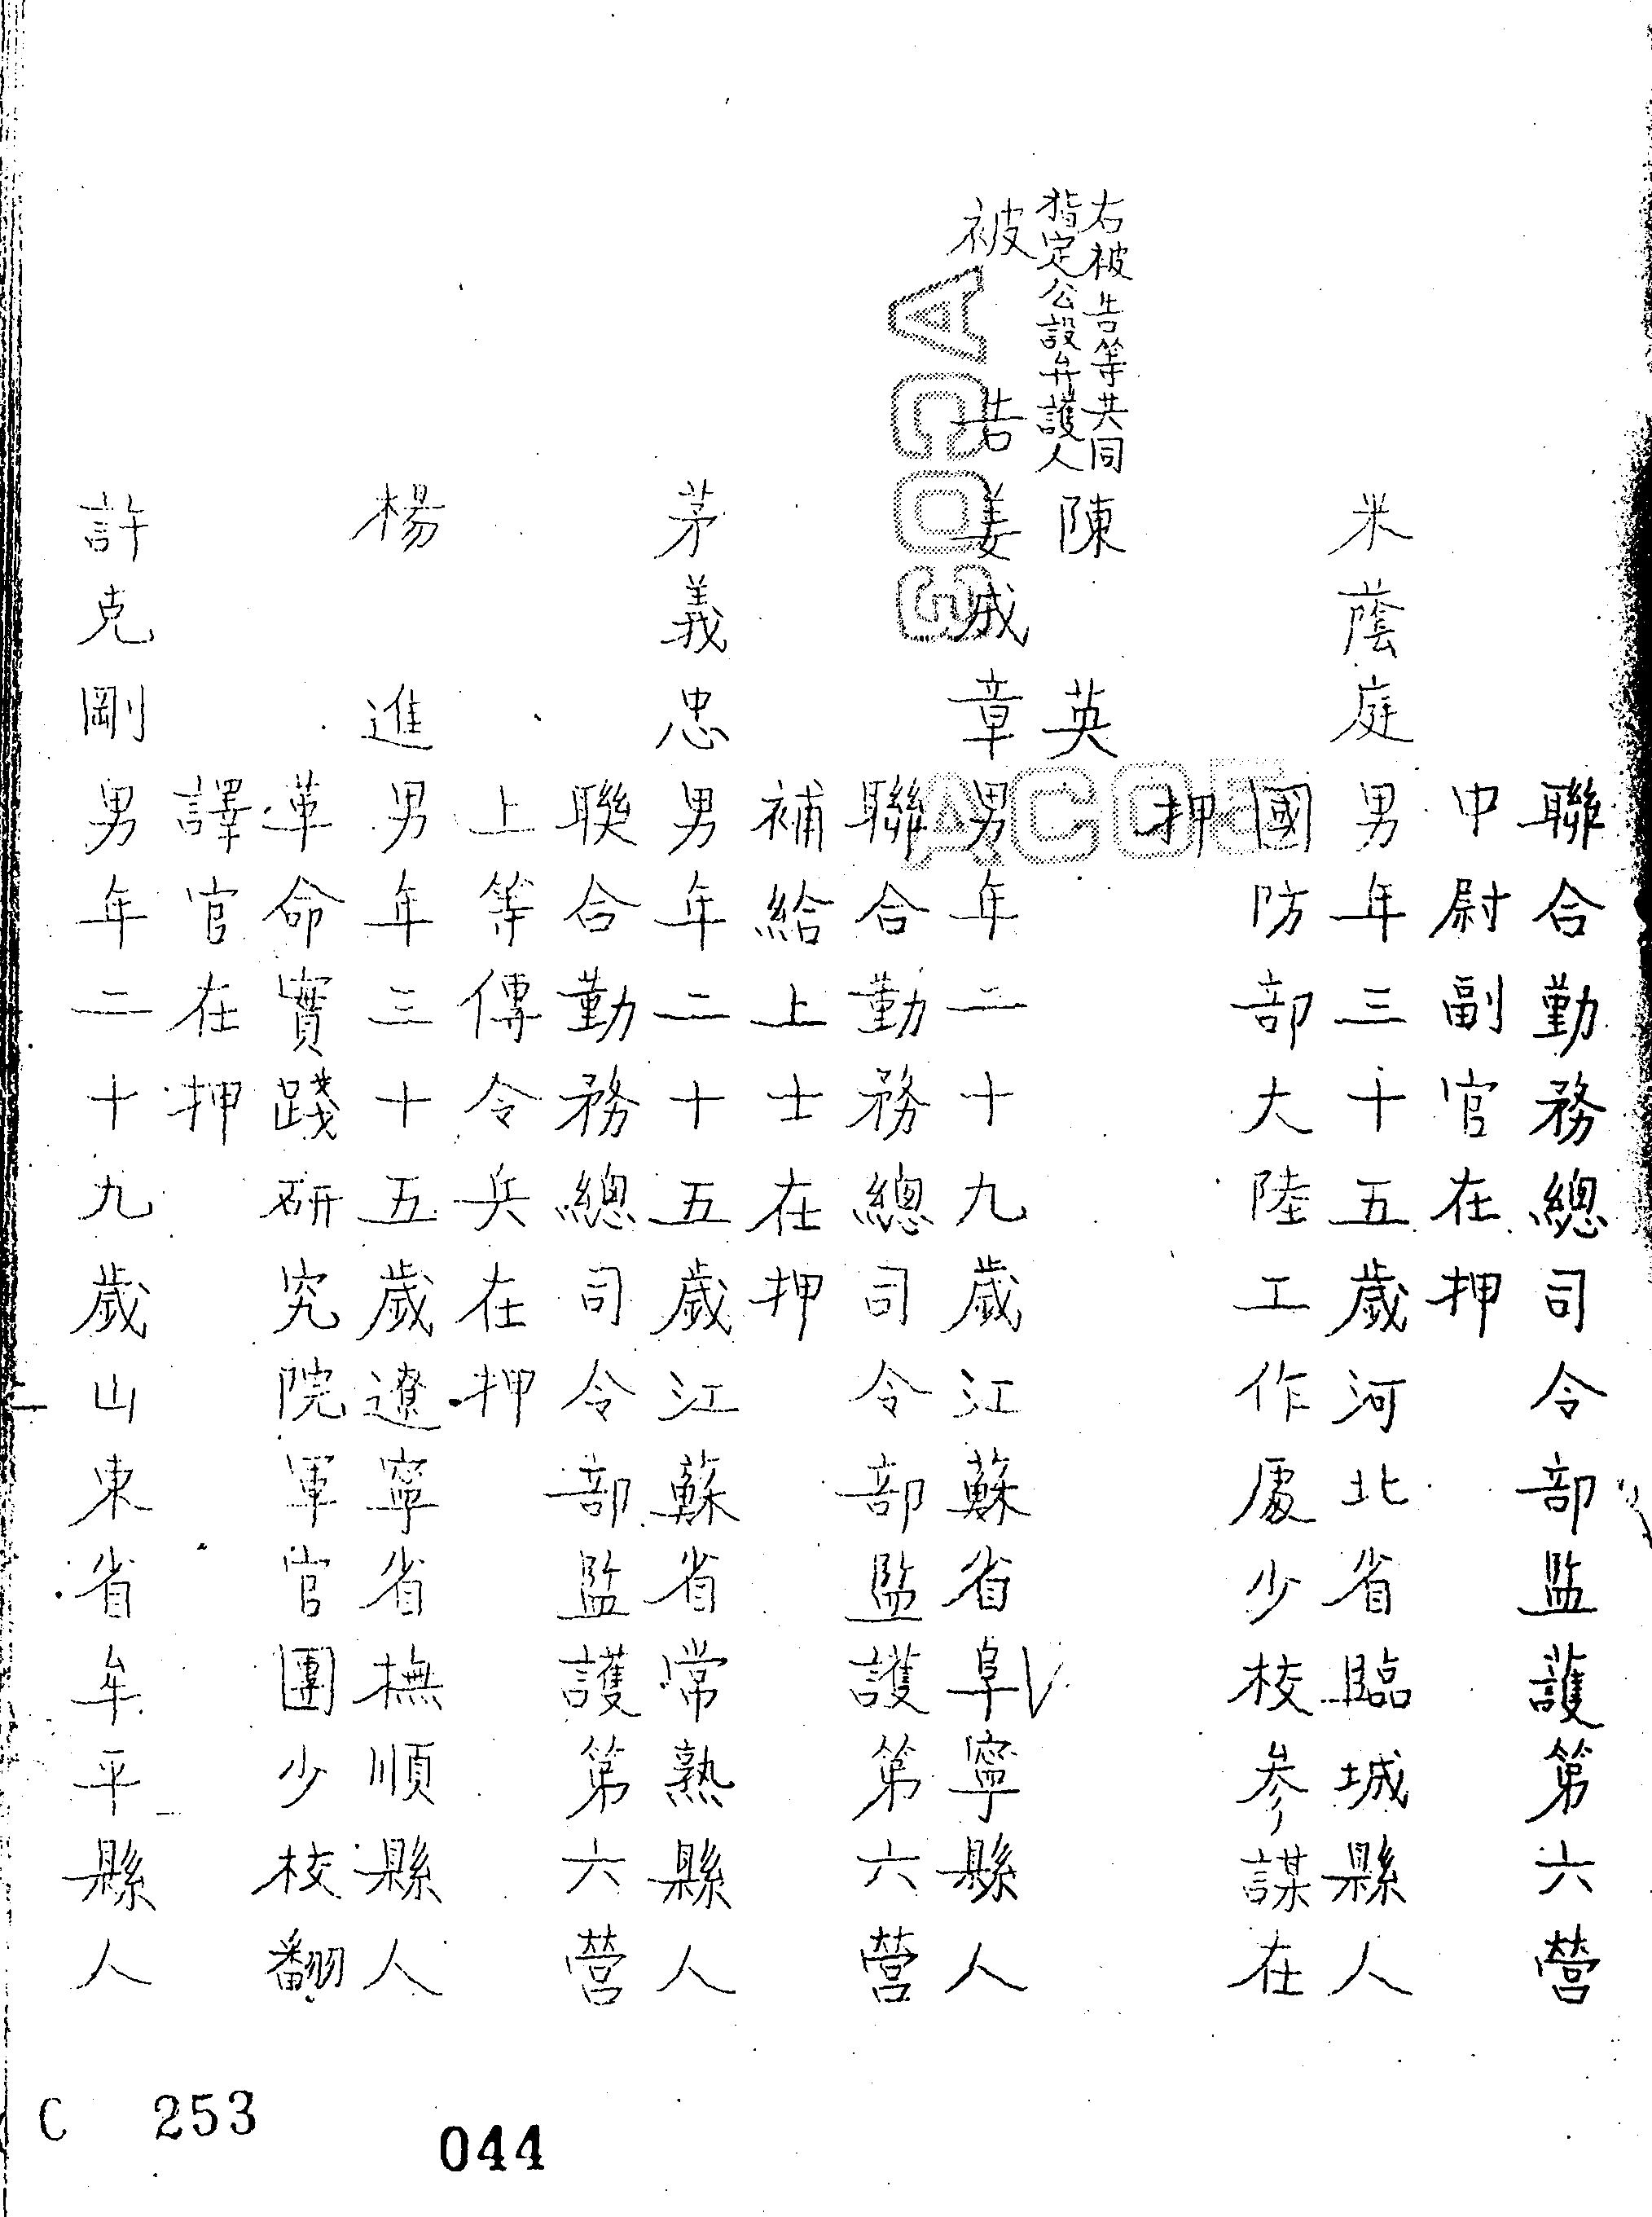 聯合勤務總司令部監護第六營
中尉副官在押
米蔭庭男年三十五歲河北省臨城縣人
國防部大陸工作處少校參謀在
押
右被告等共同
指定公設弁護人陳英
被告姜成章男年二十九歲江蘇省阜寧縣人
聯合勤務總司令部監護第六營
補給上士在押
茅義忠男年二十五歲江蘇省常熟縣人
聫合勤務總司令部監護第六營
上等傳令兵在押
楊進男年三十五歲遼寧省撫順縣人
革命實踐研究院軍官團少校翻
譯官在押
許克剛男年二十九歲山東省牟平縣人
AC03
AC05
C 253
044